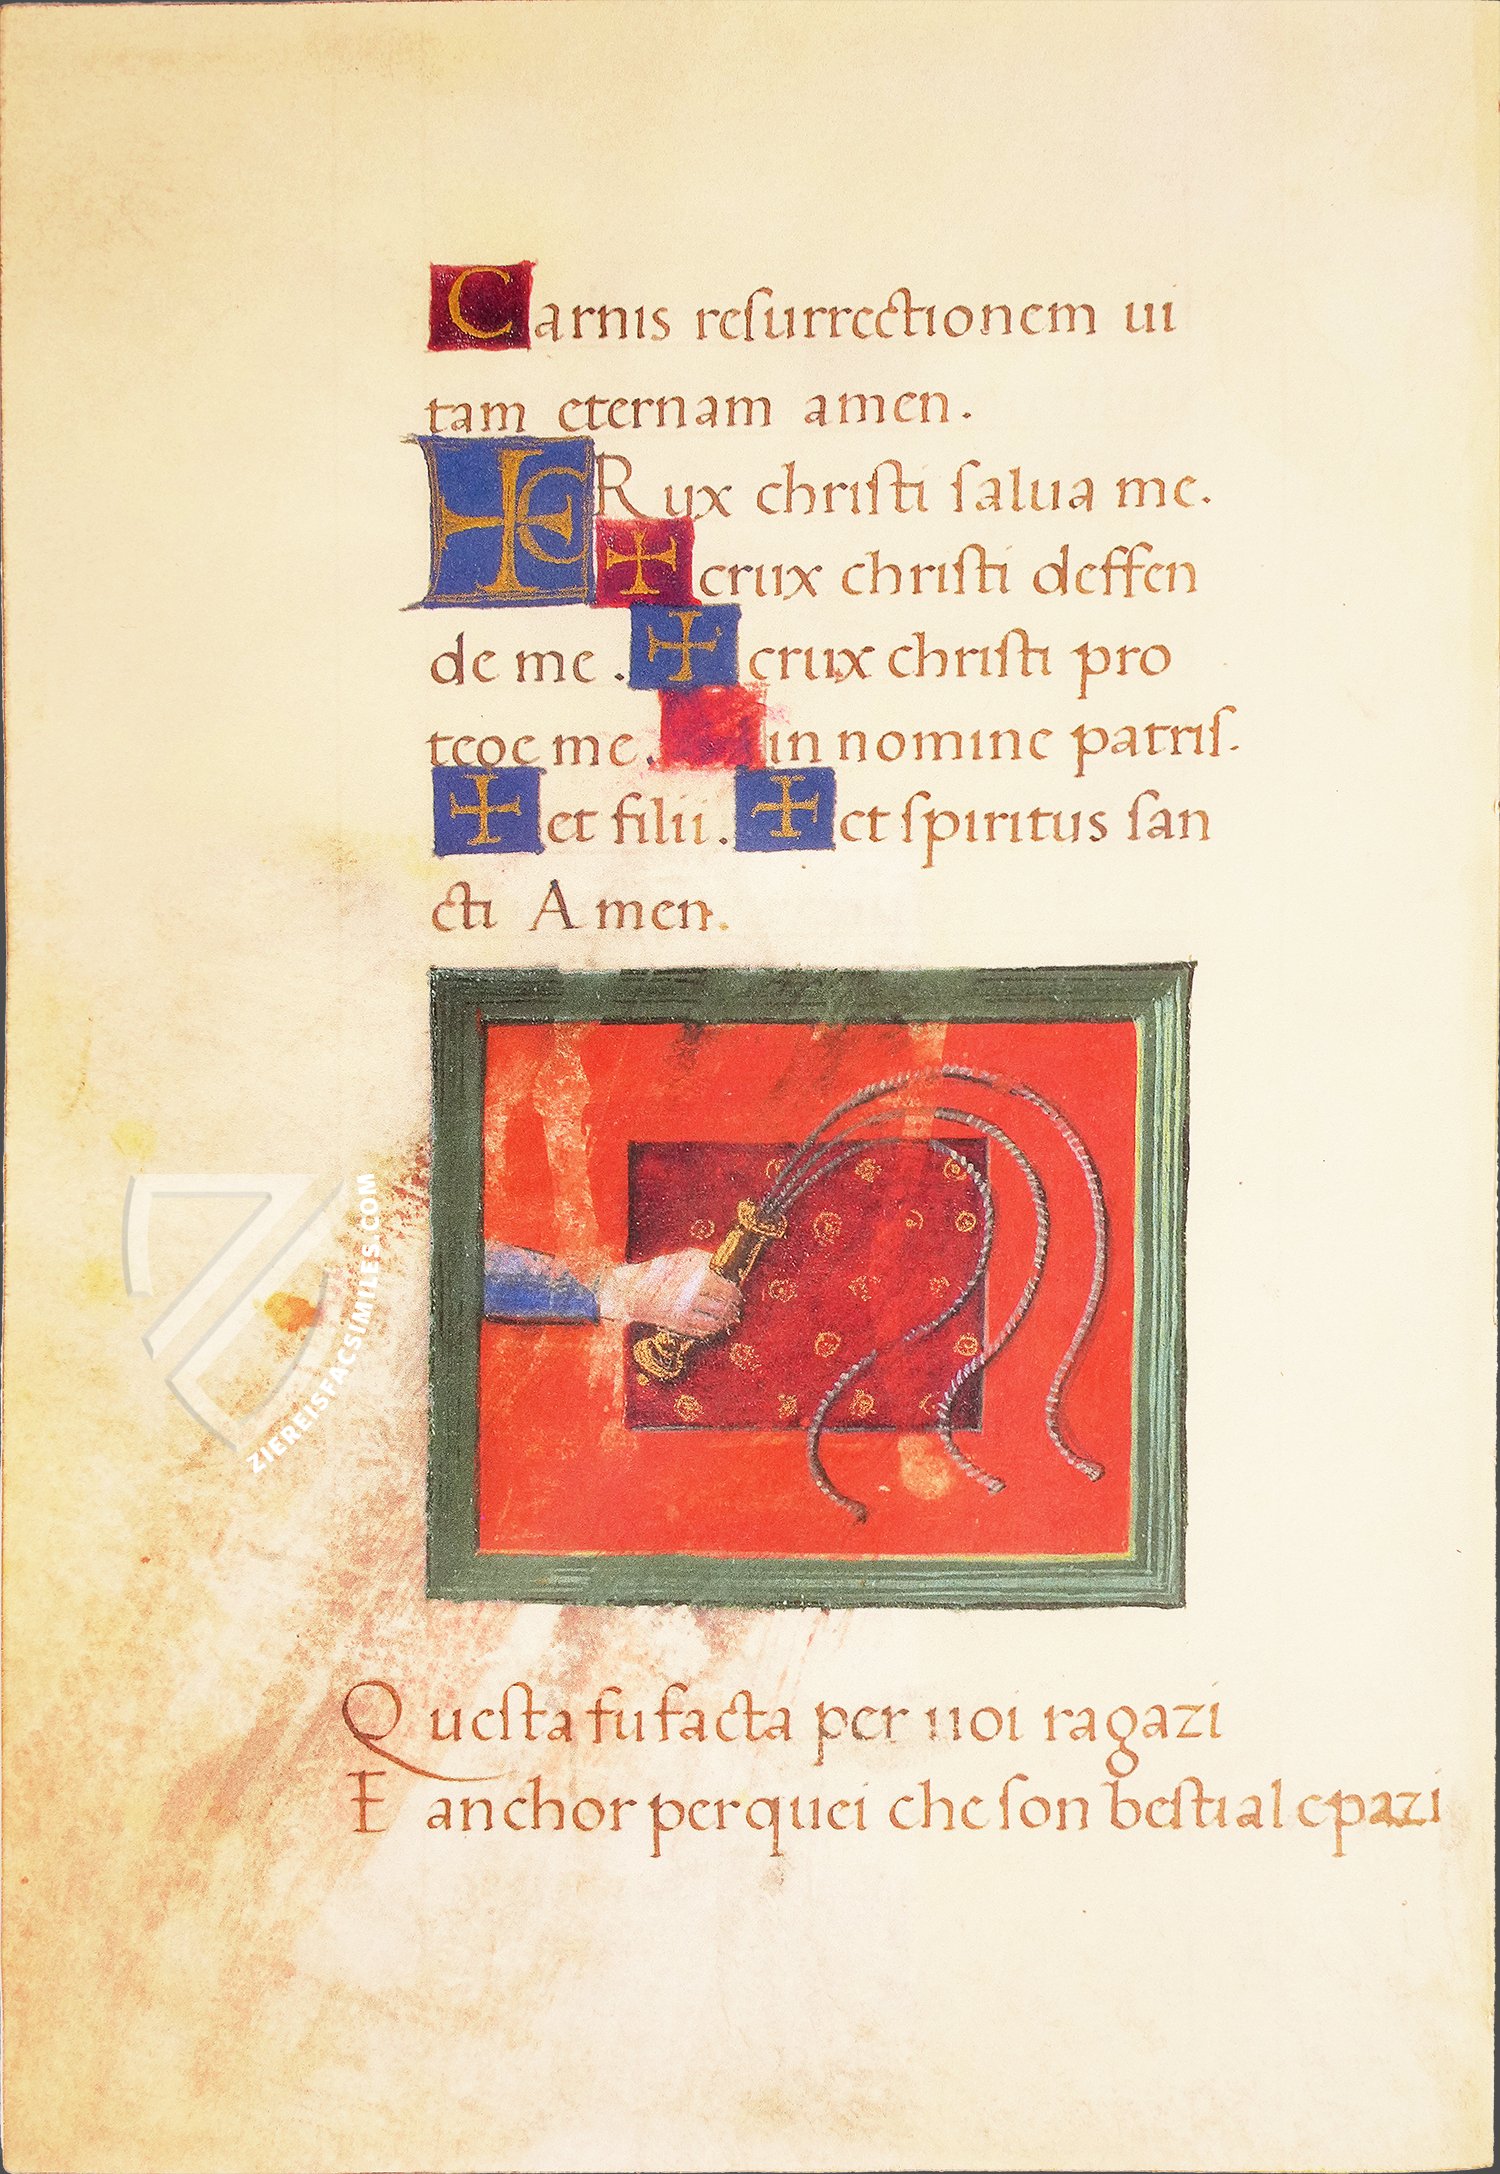 Carnis resurrectionem ui
tam eternam amen.
✠ CRux christi salua me.
✠ crux christi deffen
de me. ✠ crux christi pro
tege me. in nomine patris.
✠ et filii. ✠ et spiritus san
cti Amen.
Questa fu facta per noi ragazi
E anchor per quei che son bestial e pazi
ZIEREISFACSIMILES.COM